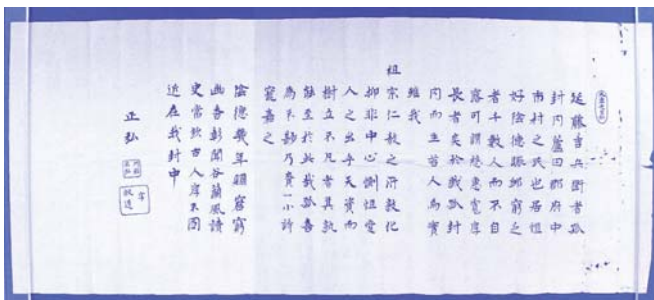 延藤吉兵衛者孤
封内蘆田郡府中
市村之民也居恒
好陰德賑邺窮乏
者千數人而不自
露可謂慈惠寛厚
長者矣於戲孤封
内而生若人焉實
繼我
祖宗仁教之所教化
抑非中心惻怛愛
人之出乎天資而
樹立不凡者其孰
能至於此哉孤喜
焉不勘乃賚一小詩
寵嘉之
陰德幾年賙窘窮
幽香彰聞谷蘭風讀
史常欽古人厚不圖
近在我封中
正弘